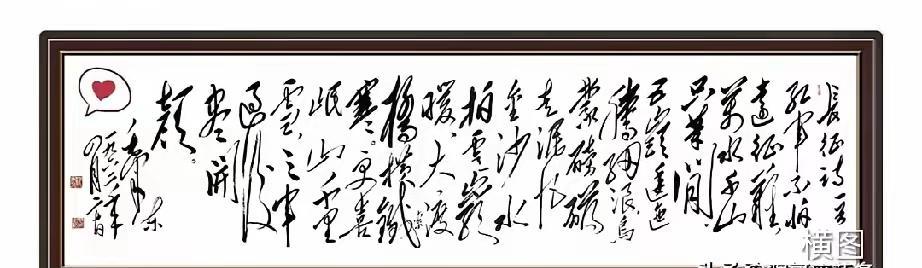 長征詩一首
紅軍不怕
遠征難
萬水千山
只等閒
五嶺逶迤
騰細浪烏
蒙磅礴
走泥丸
金沙水
拍雲巖
暖大渡
橋橫鐵索
寒。更喜
岷山千里
雪三軍
過後
盡開
顏。
毛澤東
横图